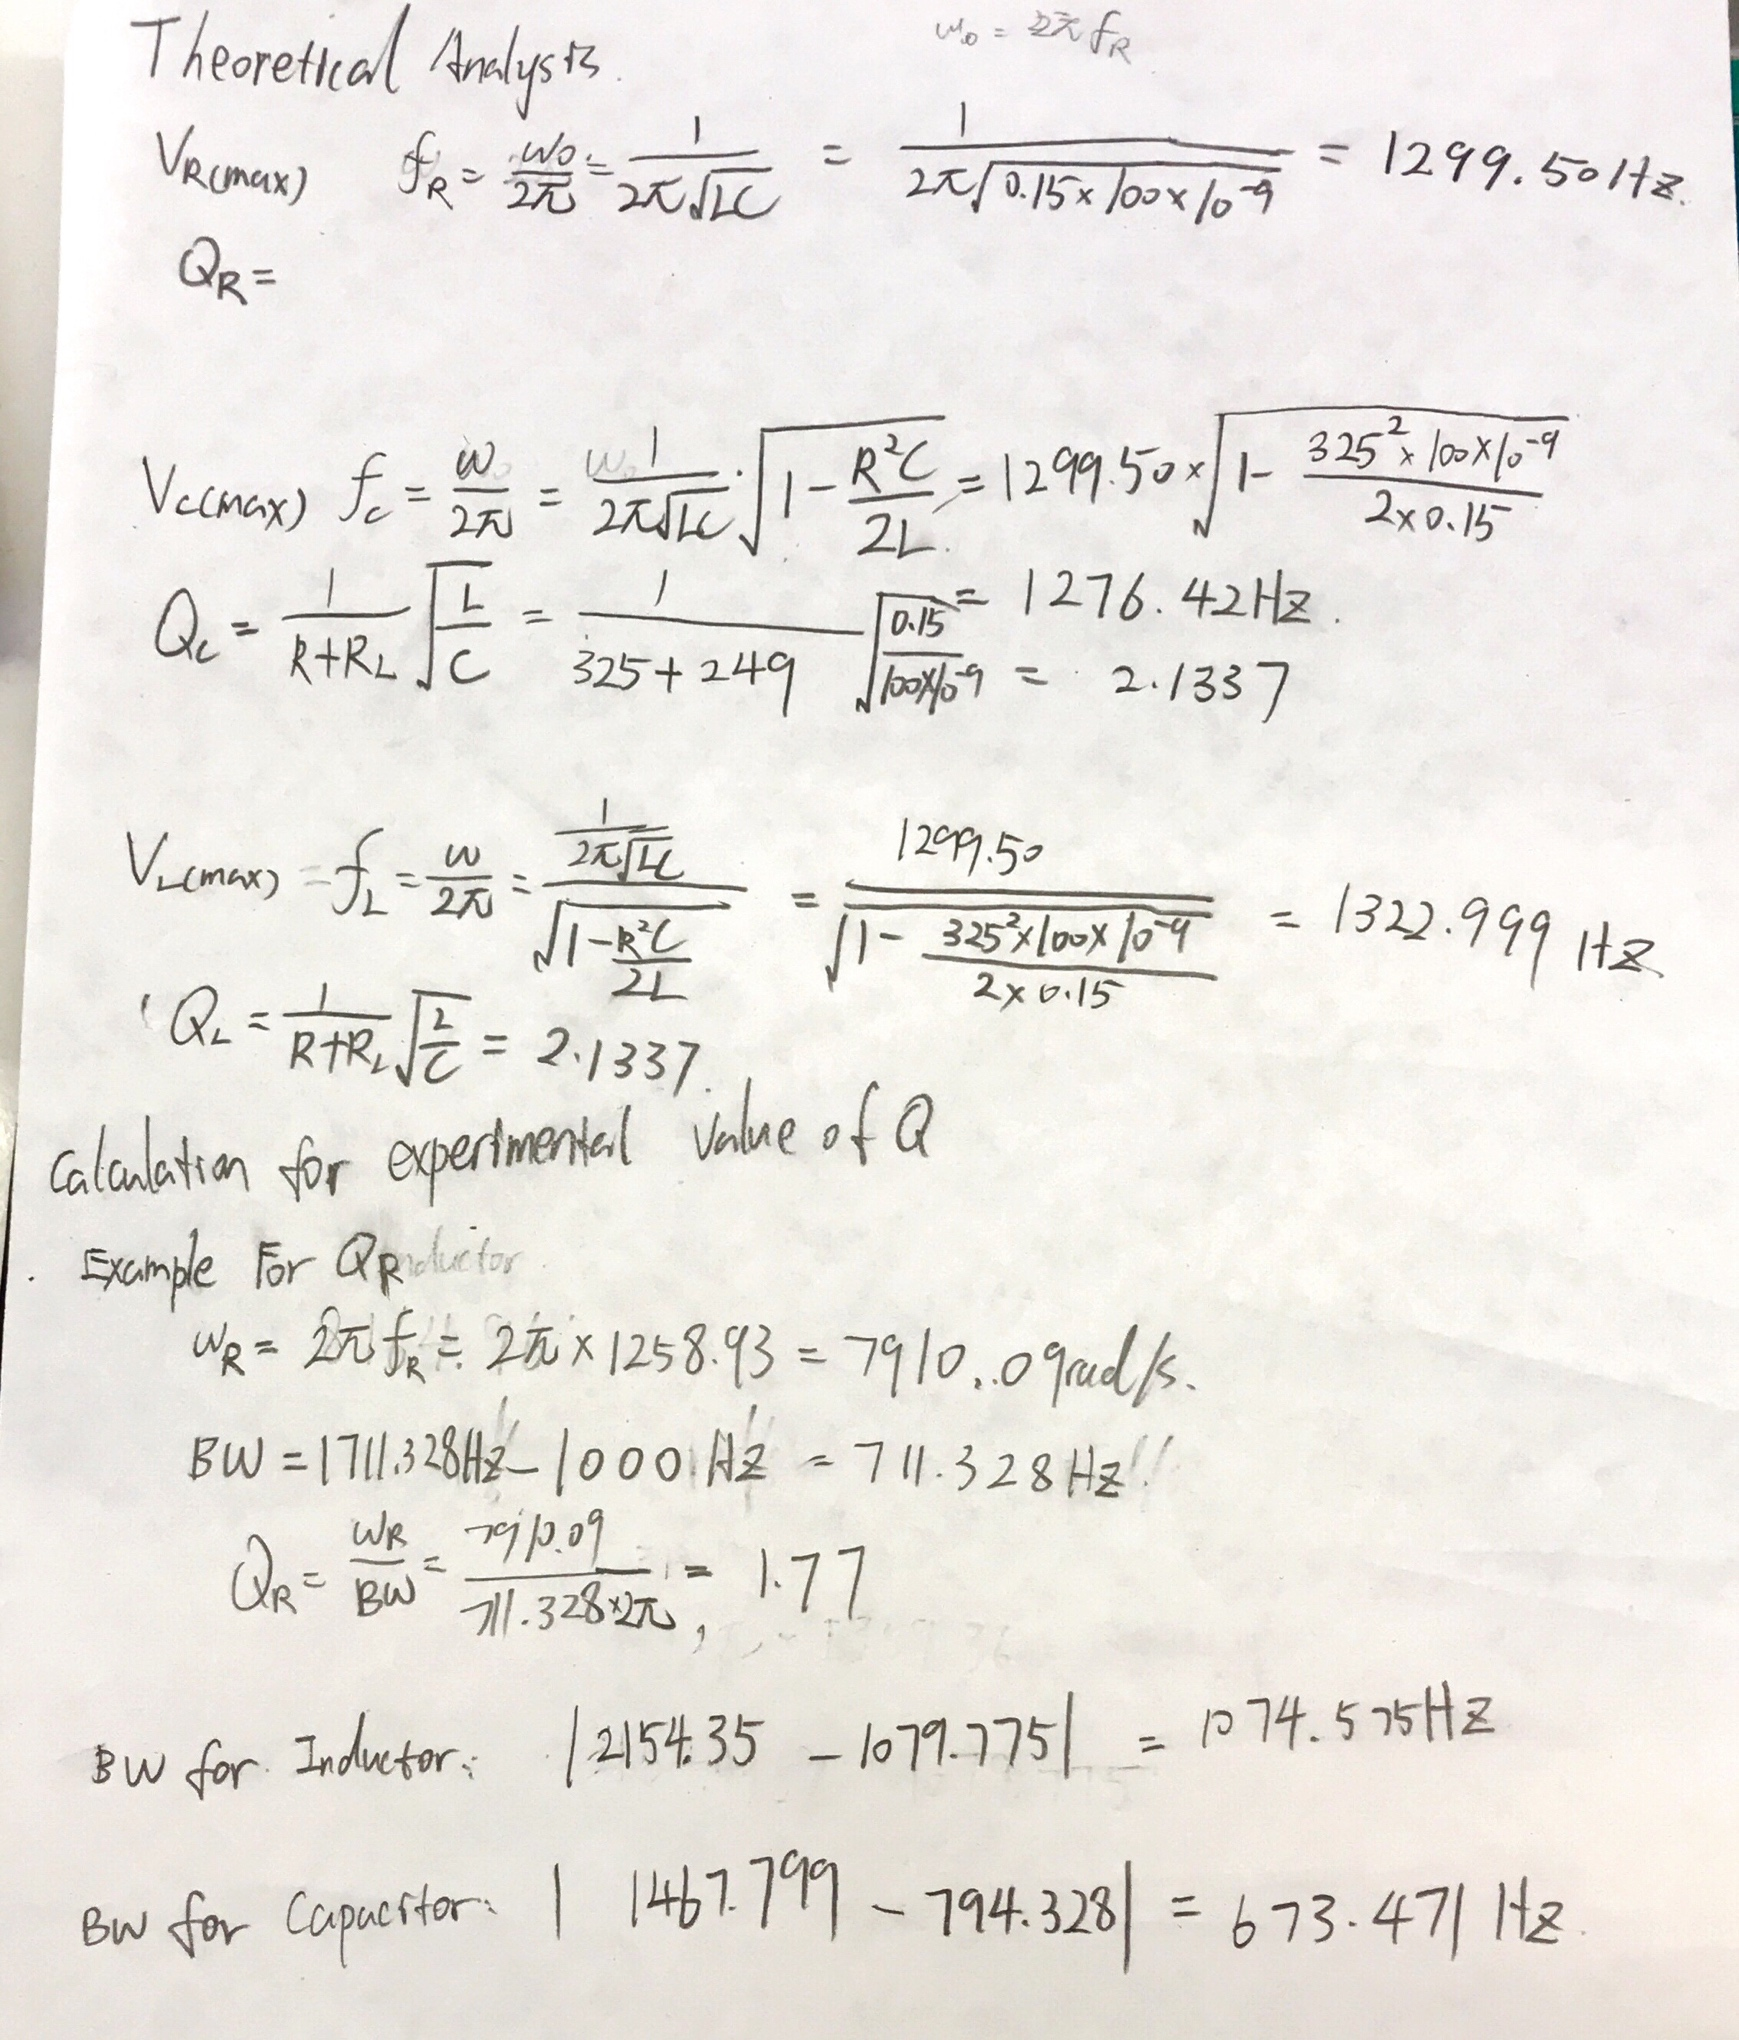 ω₀ = 2π f_R
Theoretical Analysis.
V_R(max) f_R = ω₀/2π = 1/(2π√LC) = 1/(2π√(0.15×100×10⁻⁹)) = 1299.50Hz.
Q_R =
V_C(max) f_C = ω/2π = 1/(2π√LC) · √(1 - R²C/2L) = 1299.50 × √(1 - (325²×100×10⁻⁹)/(2×0.15))
= 1276.42Hz.
Q_C = 1/(R+R_L) √(L/C) = 1/(325+249) √(0.15/(100×10⁻⁹)) = 2.1337
V_L(max) = f_L = ω/2π = (1/(2π√LC))/√(1 - R²C/2L) = 1299.50/√(1 - (325²×100×10⁻⁹)/(2×0.15)) = 1322.999 Hz
Q_L = 1/(R+R_L) √(L/C) = 2.1337.
Calculation for experimental value of Q
Example For Q_R
ω_R = 2π f_R = 2π × 1258.93 = 7910..09rad/s.
BW = 1711.328Hz - 1000 Hz = 711.328Hz
Q_R = ω_R/BW = 7910.09/(711.328×2π) = 1.77
BW for Inductor: |2154.35 - 1079.775| = 1074.575Hz
BW for Capacitor: |1467.799 - 794.328| = 673.471 Hz.